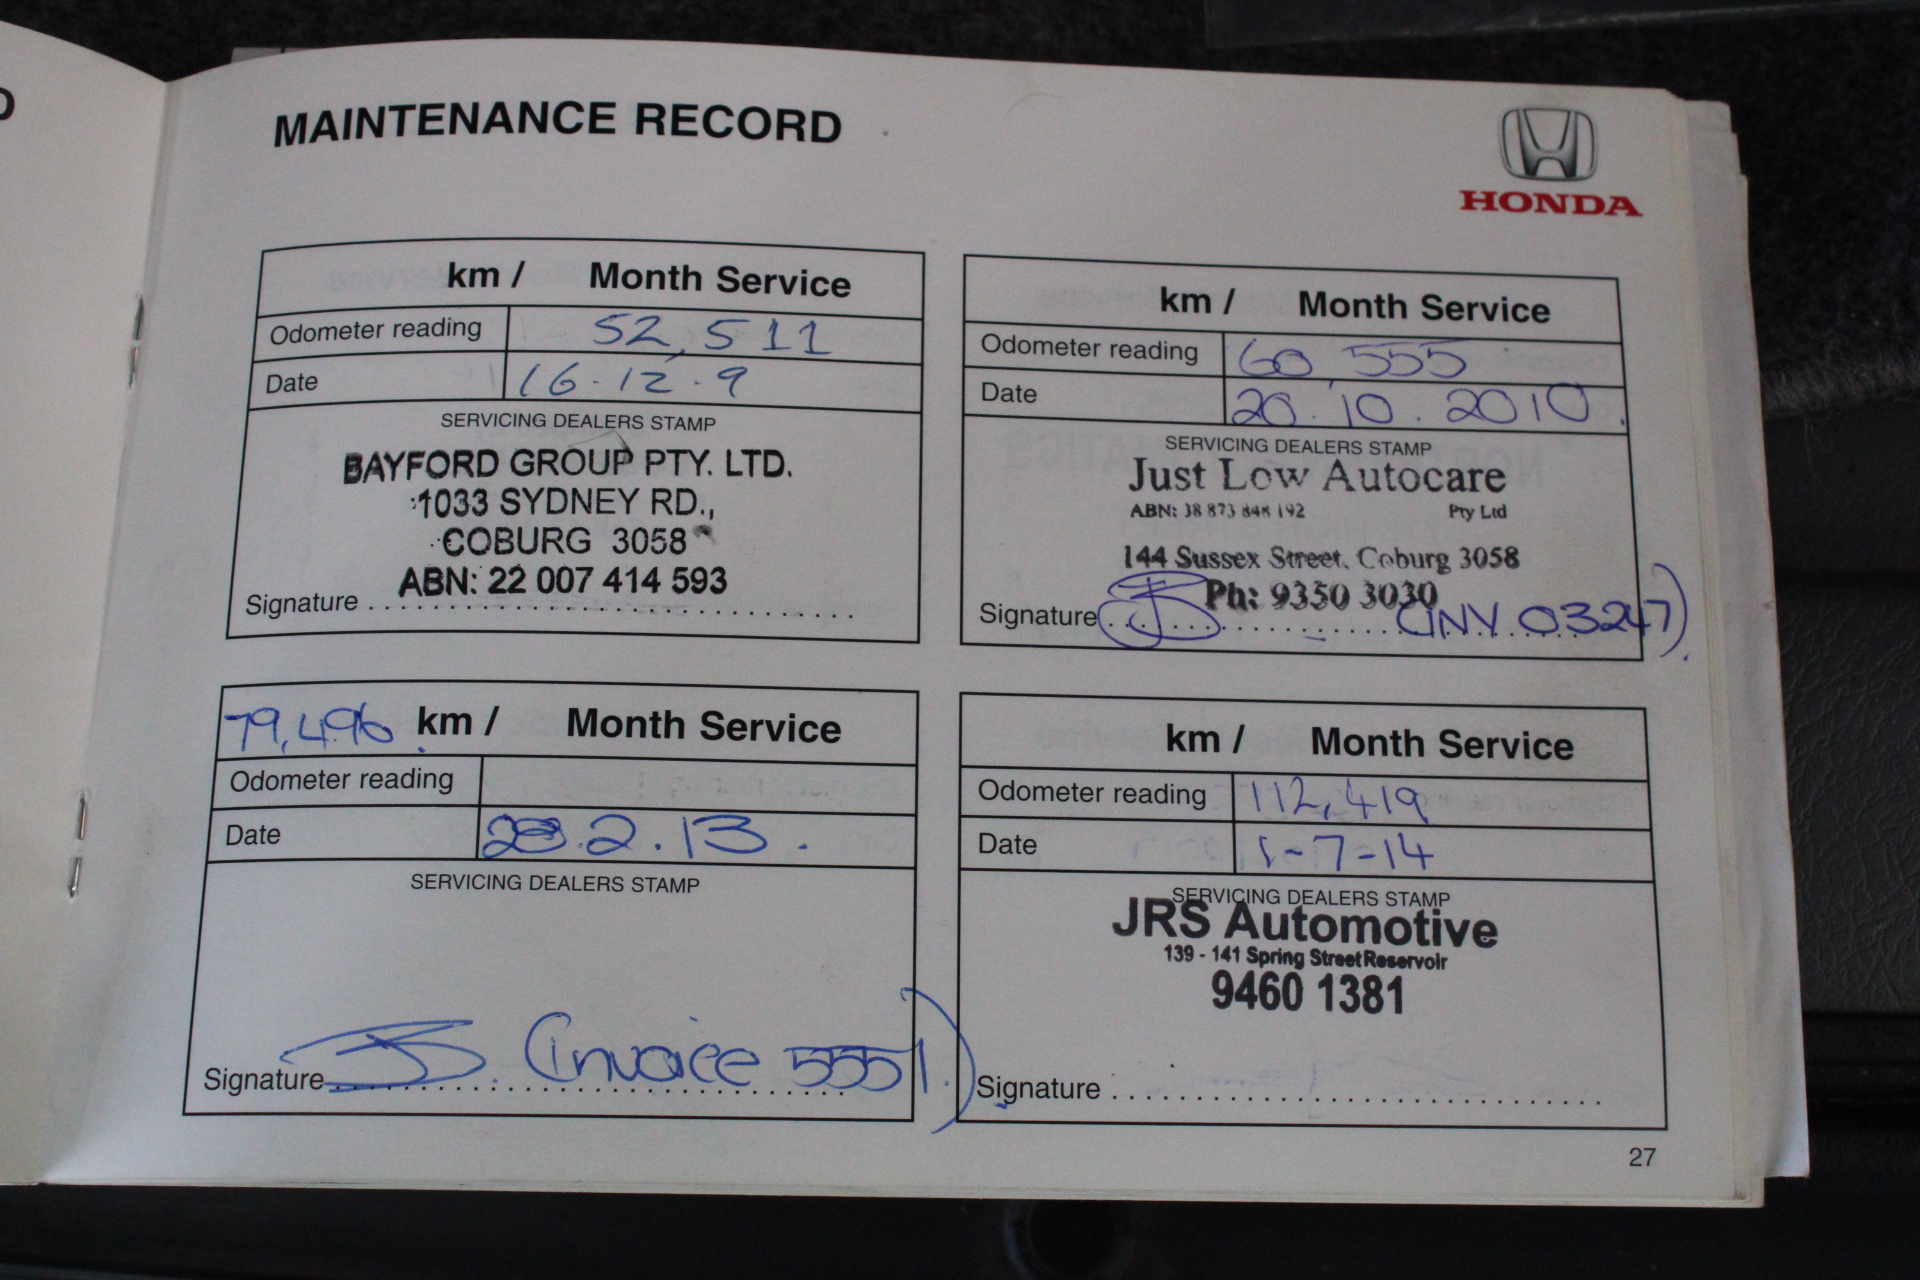 D
MAINTENANCE RECORD
HONDA
km / Month Service
Odometer reading 52,511
Date 16.12.9
SERVICING DEALERS STAMP
BAYFORD GROUP PTY. LTD.
1033 SYDNEY RD.,
COBURG 3058
ABN: 22 007 414 593
Signature
km / Month Service
Odometer reading 60,555
Date 20.10.2010.
SERVICING DEALERS STAMP
Just Low Autocare
ABN: 38 873 848 192 Pty Ltd
144 Sussex Street, Coburg 3058
Ph: 9350 3030
Signature (INV 03247).
79,496 km / Month Service
Odometer reading
Date 28.2.13.
SERVICING DEALERS STAMP
Signature (invoice 5551.)
km / Month Service
Odometer reading 112,419
Date 1-7-14
SERVICING DEALERS STAMP
JRS Automotive
139 - 141 Spring Street Reservoir
9460 1381
Signature
27